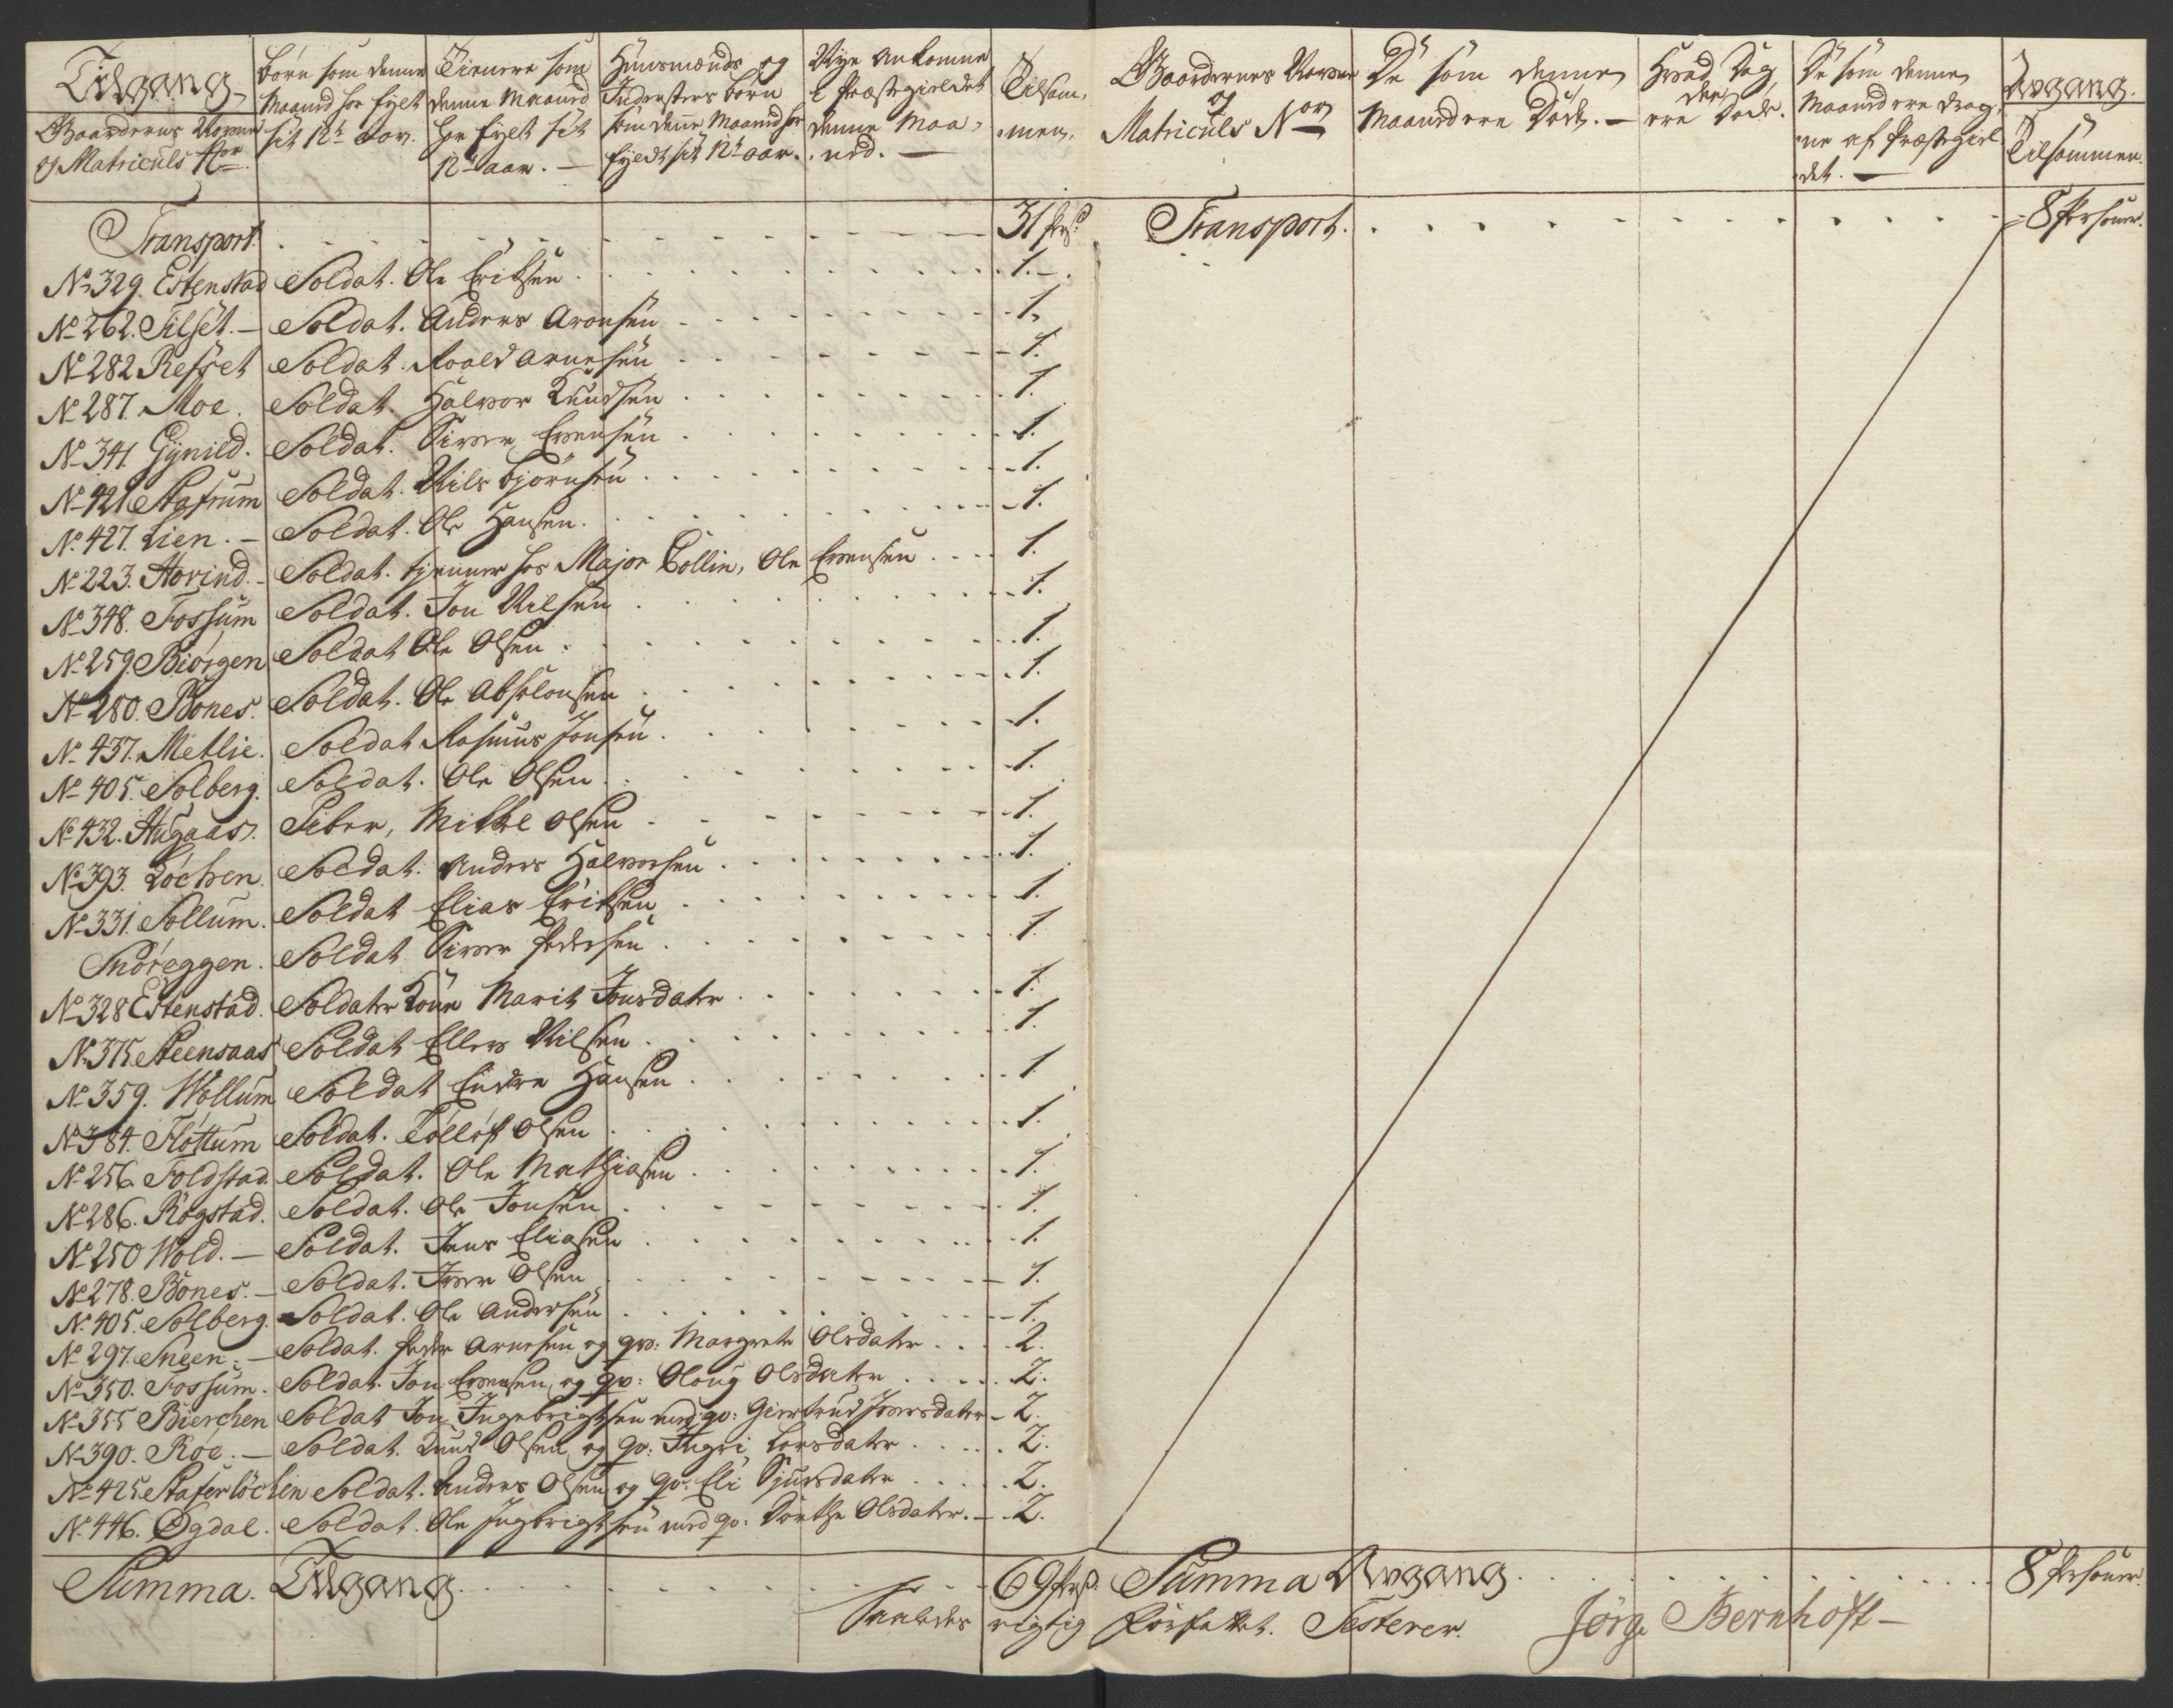 Tilgang
Gaardernes Navne og Matriculs Nor
børn som denne Maaned har fylt sit 12te aar.
Tienere som denne Maaned har fylt sit 12te aar. —
Huusmænds og Inderster børn som denne Maaned har fyldt sit 12te aar.
Nye ankomne i Præstegieldet denne Maaned. —
Tilsammen.
Gaardernes Navne og Matriculs Nor
De som denne Maaned ere Døde. —
Hvad Dag de ere Døde.
De som denne Maaned ere dragne af Præstegieldet. —
Avgang.
Tilsammen.
Transport. 31 prs: Transport. 8 Personer.
No 329. Estenstad Soldat. Ole Eriksen 1.
No 262. Tilset. — Soldat. Anders Aronsen 1.
No 282 Refset Soldat. Roald Arnesen 1.
No 287. Moe. Soldat. Halvor Knudsen 1.
No 341. Gynild. Soldat. Siver Evensen 1.
No 421 Stafrum Soldat. Nils Bjørnsen 1.
No 427. Lien. — Soldat. Ole Hansen. 1.
No 223. Hovind. — Soldat. tjenner hos Major Collin, Ole Evensen 1.
No 348. Fossum Soldat. Jon Nilsen 1.
No 259. Biørgen Soldat Ole Olsen 1.
No 280. Bones. Soldat. Ole Absolonsen 1.
No 437. Metlie. Soldat Rasmus Jonsen 1.
No 405. Solberg. Soldat. Ole Olsen 1.
No 432. Hugaas. Piber, Mikkel Olsen 1.
No 393. Løchen. Soldat. Anders Halvorsen 1.
No 331. Sollum. Soldat Elias Eriksen 1.
Snøreggen. Soldat Siver Pedersen 1.
No 328 Estenstad. Soldater Kone Marit Jonsdater 1.
No 375. Steensaas Soldat Ellev Nilsen 1.
No 359. Wollum Soldat Endre Hansen 1.
No 384. Fløttum Soldat. Tollof Olsen 1.
No 256. Foldstad. Soldat. Ole Mathiasen 1.
No 286. Rogstad. Soldat. Ole Jonsen 1.
No 250 Wold. — Soldat. Jens Eliasen 1.
No 278. Bones. — Soldat. Iver Olsen 1.
No 405. Solberg. Soldat. Ole Andersen 1.
No 297. Sneen. — Soldat. Peder Arnesen og qv: Margrete Olsdater 2.
No 350. Fossum. Soldat. Jon Evensen og qv: Oloug Olsdater 2.
No 355 Bierchen Soldat Jon Ingebrigtsen med qv: Giertrud Iversdater — 2.
No 390. Roe. — Soldat. Knud Olsen og qv: Ingri Larsdater 2.
No 425 Staferløchen Soldat. Anders Olsen og qv: Eli Sjursdater 2.
No 446. Ogdal. Soldat. Ole Ingbrigtsen med qv: Dorthe Olsdater. — 2.
Summa. Tilgang. 69 prs: Summa Avgang. 8 Personer.
Saaledes rigtig forfattet. Testerer. Jörge Bernhoft —